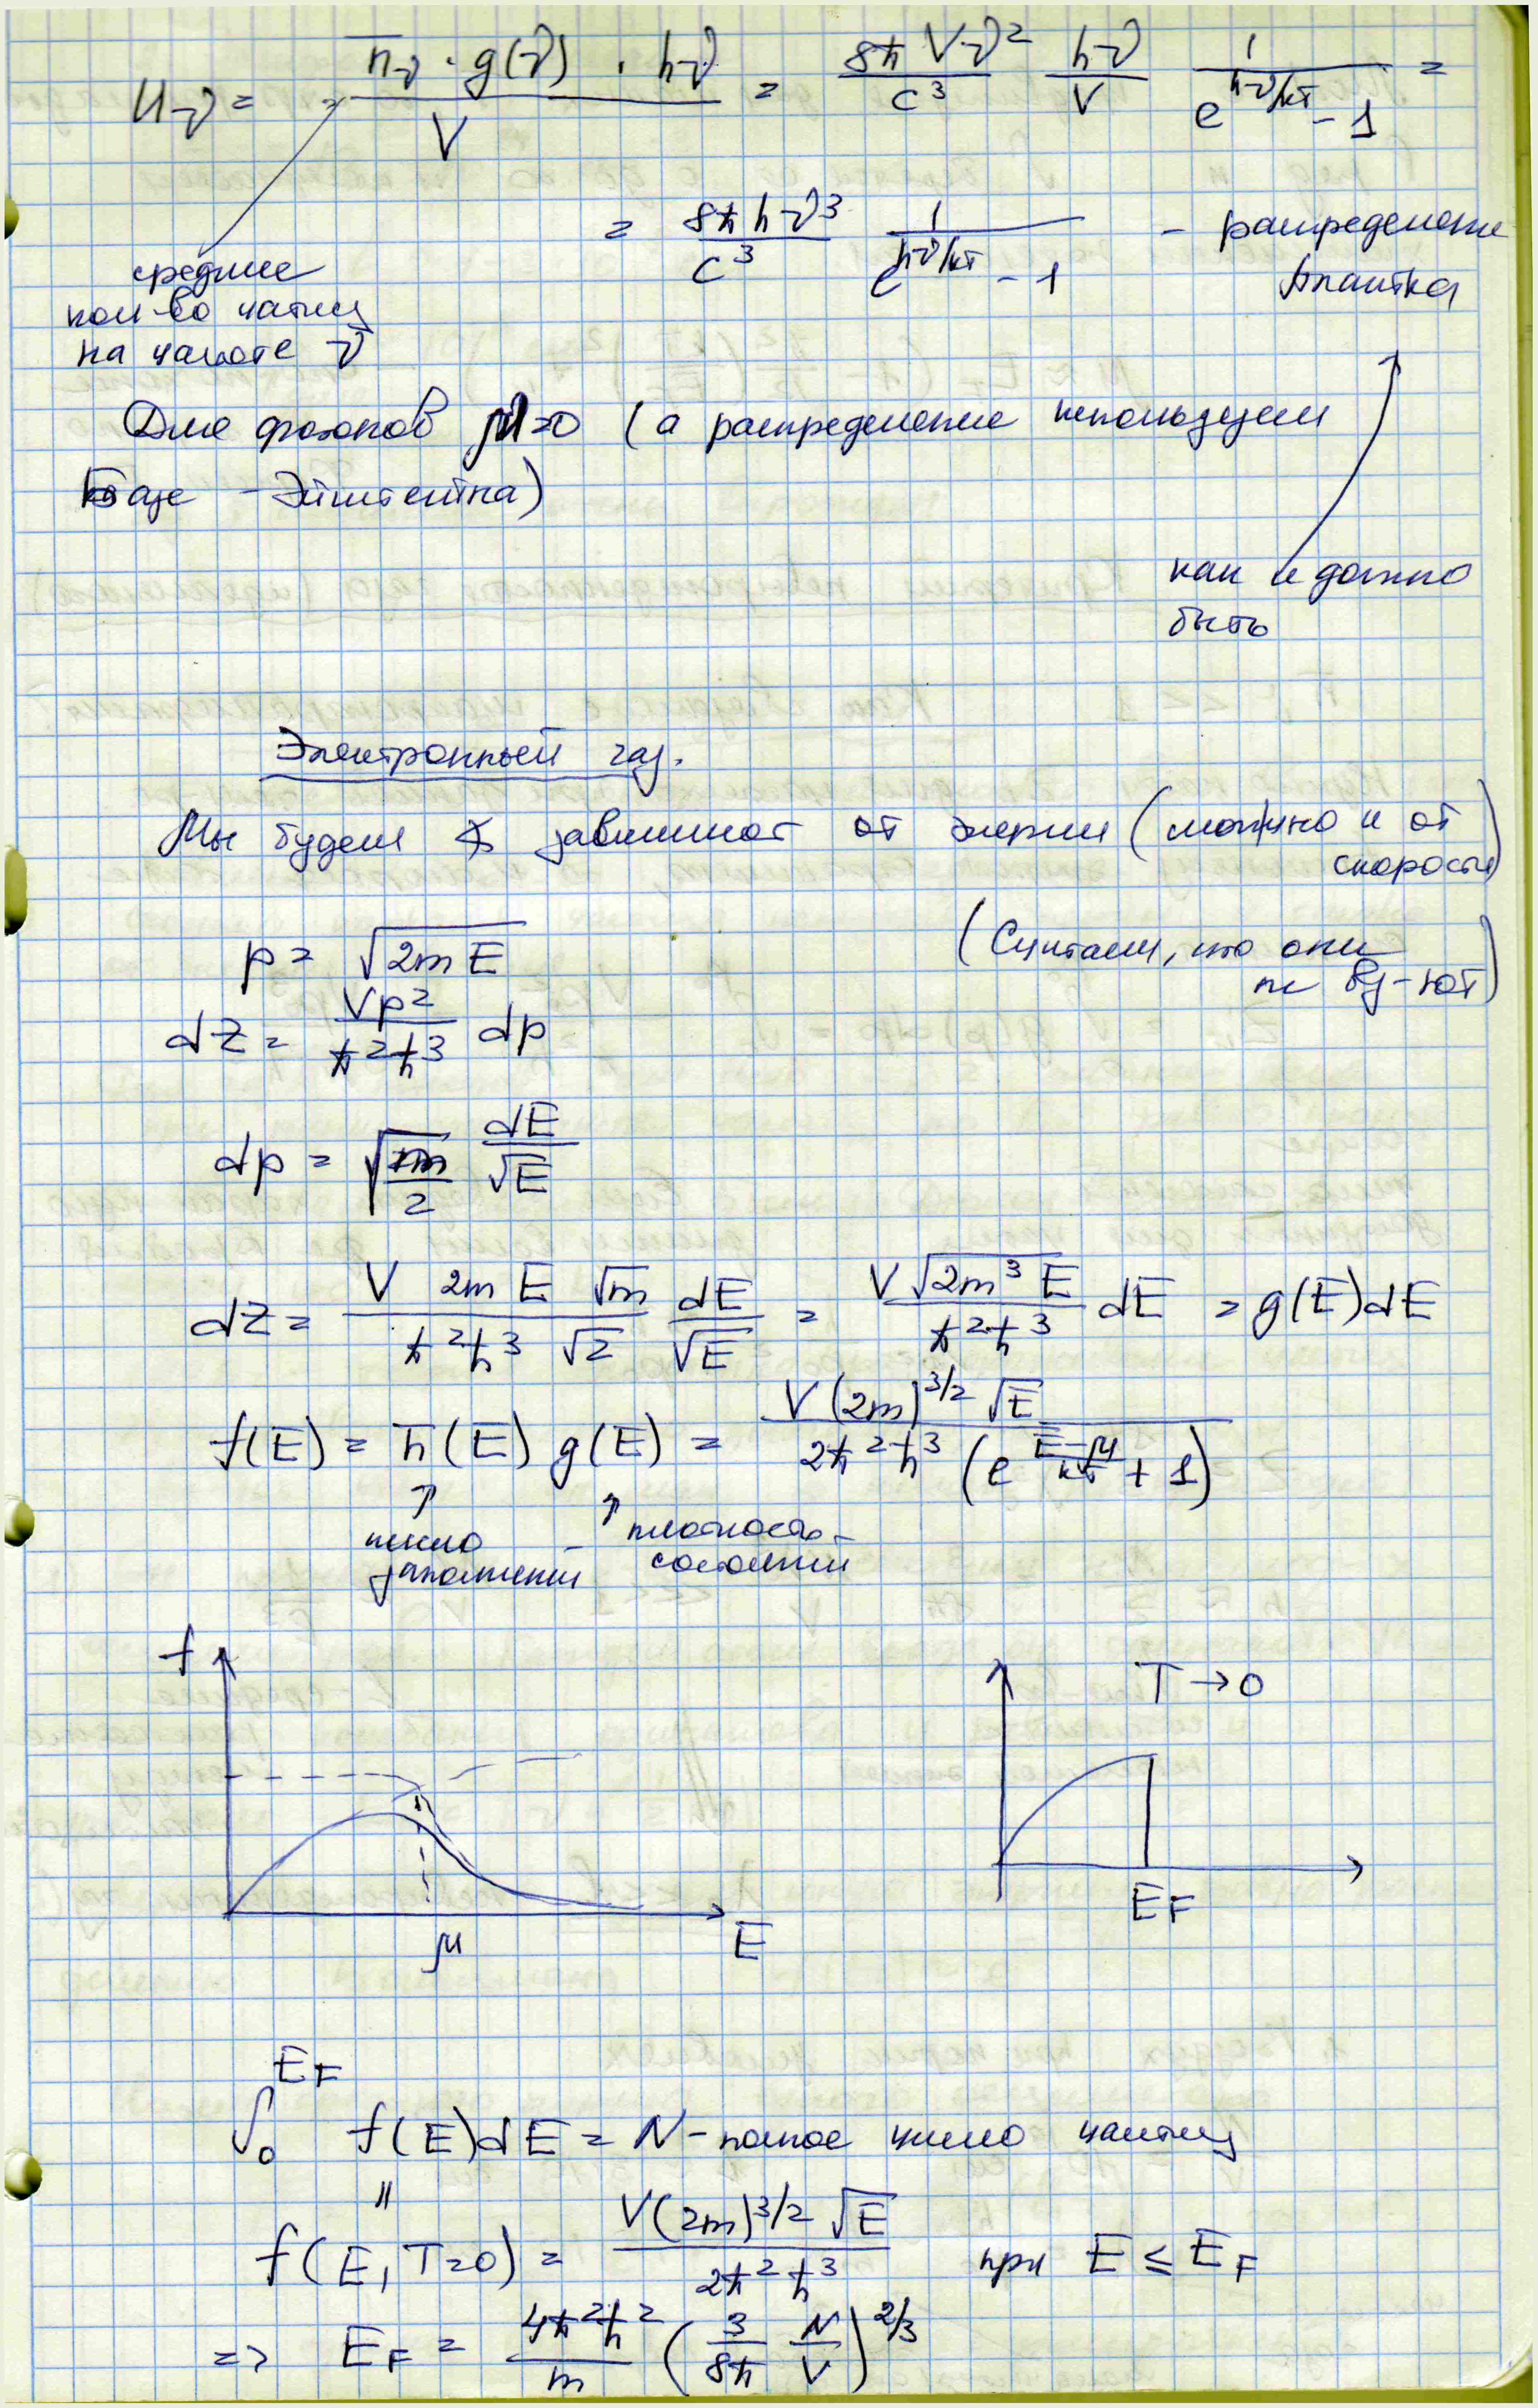 u_ν = = n̅_ν · g(ν) · hν / V = 8π V ν² / c³ hν / V 1 / (e^{hν/kT} - 1) =
= 8π h ν³ / c³ 1 / (e^{hν/kT} - 1) - распределение
Планка
среднее
кол-во частиц
на частоте ν
Для фотонов μ=0 (а распределение используем
Бозе - Эйнштейна)
как и должно
быть
Электронный газ.
Мы будем зависимость от энергии (можно и от
скорости)
p = √(2mE)
(Считаем, что они
не вз-ют)
dZ = Vp² / π²ħ³ dp
dp = √(m/2) dE / √E
dZ = V 2m E √m / π²ħ³ √2 dE / √E = V √(2m³E) / π²ħ³ dE = g(E)dE
f(E) = n̅(E) g(E) = V(2m)^{3/2} √E / 2π²ħ³ (e^{(E-μ)/kT} + 1)
↑ ↑
число заполнения
плотность состояний
f
μ
E
T → 0
E_F
∫_0^{E_F} f(E)dE = N - полное число частиц
||
f(E, T=0) = V(2m)^{3/2} √E / 2π²ħ³ при E ≤ E_F
=> E_F = 4π²ħ² / m (3/8π N/V)^{2/3}